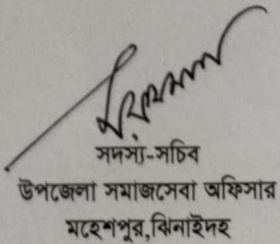 সদস্য-সচিব
উপজেলা সমাজসেবা অফিসার
মহেশপুর,ঝিনাইদহ